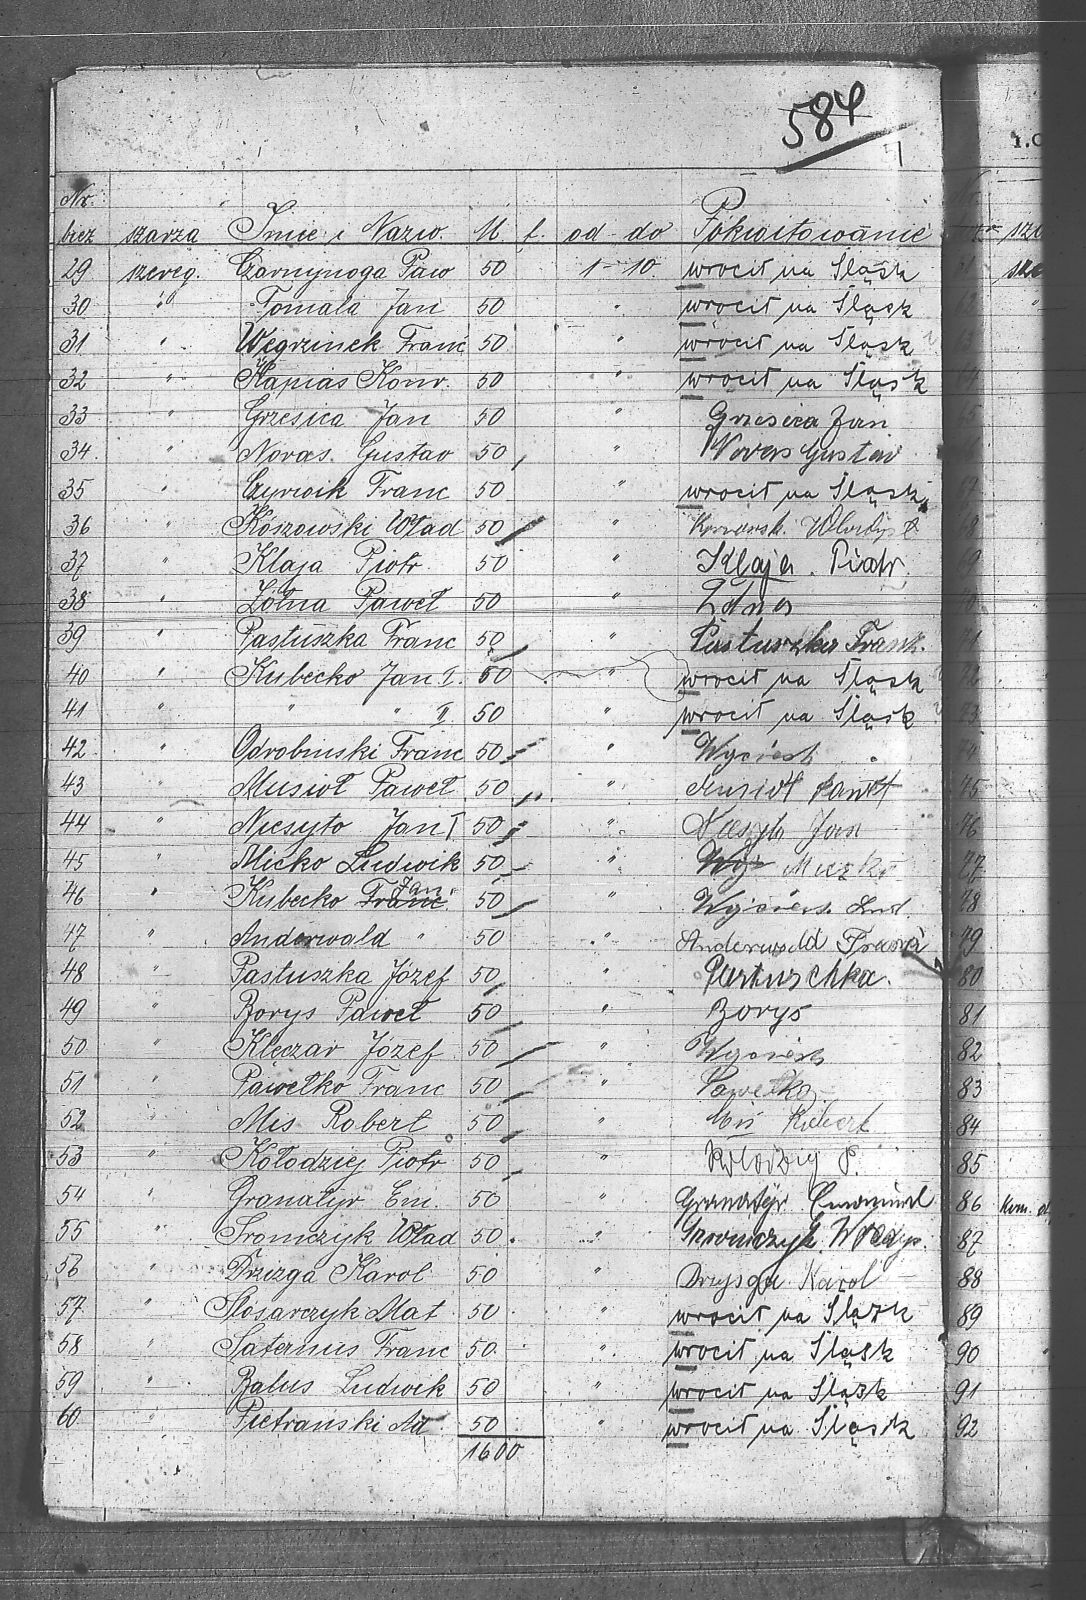 584
1
I.C
Nr.
bież szarża Imię i Nazw. M f. od do Pokwitowanie
29 szereg. Czarnynoga Paw 50 1-10 wrócił na Śląsk
30 " Tomala Jan 50 " wrócił na Śląsk
31 " Węgrzinek Franc 50 " wrócił na Śląsk
32 " Kapias Konr. 50 " wrócił na Śląsk
33 " Grzesica Jan 50 " Grzesica Jan
34 " Novas Gustav 50 " Novas Gustav
35 " Czyrwik Franc 50 " wrócił na Śląsk
36 " Koszowski Wład 50 "
37 " Klaja Piotr 50 " Klaja Piotr
38 " Żótna Paweł 50 "
39 " Pastuszka Franc 50 " Pastuszka Franz.
40 " Kubecko Jan I. 50 " wrócił na Śląsk
41 " " " II 50 " wrócił na Śląsk
42 " Odrobinski Franc 50 "
43 " Musioł Paweł 50 " Musioł Paweł
44 " Niesyto Jan I 50 " Jan
45 " Micko Ludwik 50 " Miczko
46 " Kubecko Franc Jan 50 "
47 " Anderwald " 50 " Anderwald Franc
48 " Pastuszka Józef 50 " Pastuschka.
49 " Borys Paweł 50 " Borys
50 " Kleczar Józef 50 "
51 " Pawełko Franc 50 " Pawełko
52 " Mis Robert 50 " Robert
53 " Kołodziej Piotr 50 " Kołodziej P.
54 " Granatyr Em. 50 " Granatyr
55 " Sromczyk Wład 50 "
56 " Drzizga Karol 50 " Karol
57 " Slosarczyk Mat 50 " wrócił na Śląsk
58 " Saternus Franc 50 " wrócił na Śląsk
59 " Balus Ludwik 50 " wrócił na Śląsk
60 " Pietranski Ad. 50 " wrócił na Śląsk
1600
79
80
81
82
83
84
85
86 Kom.
87
88
89
90
91
92